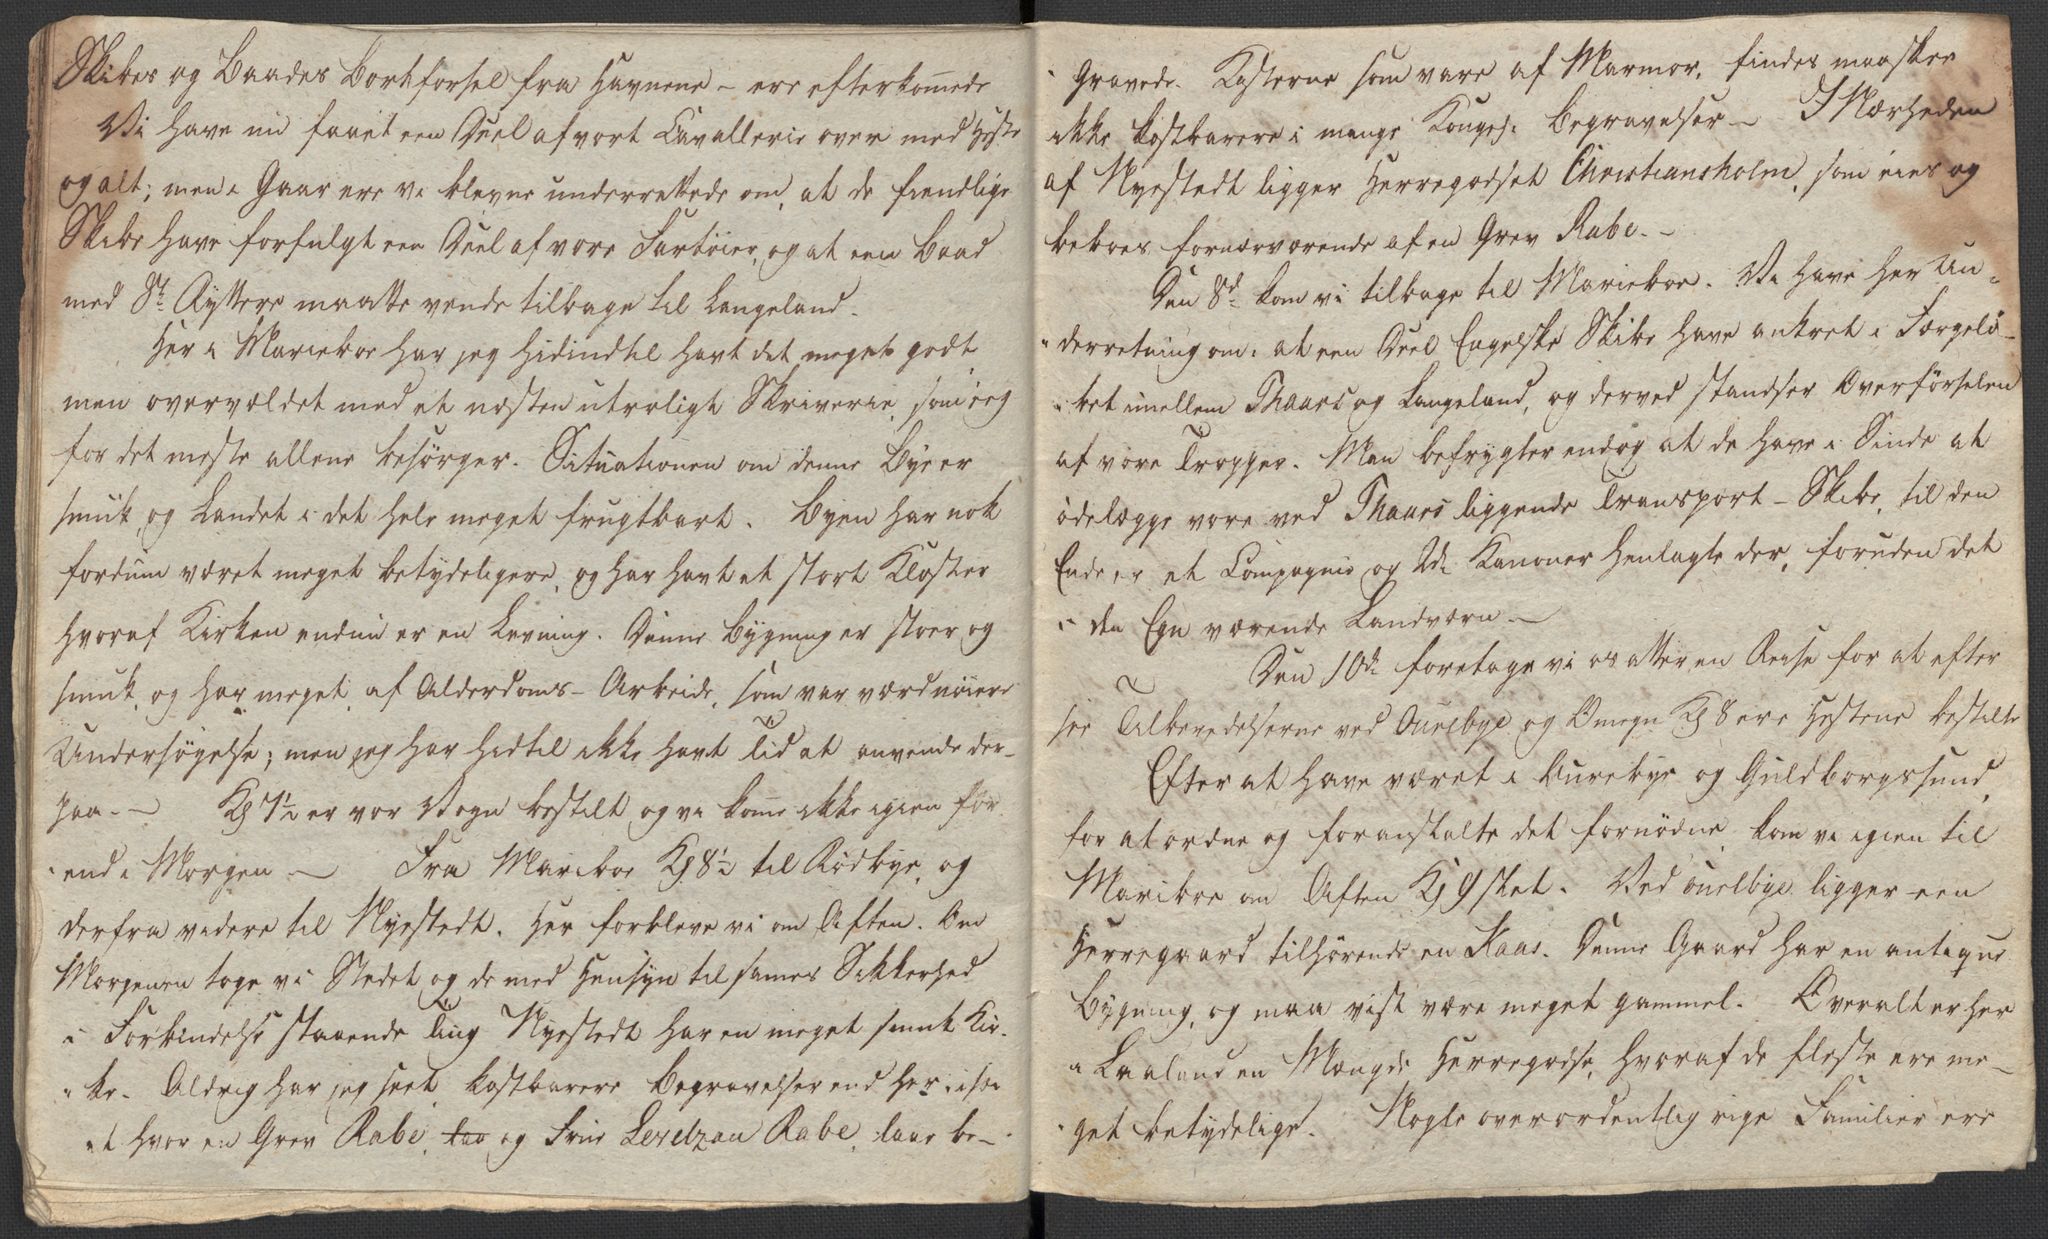 Skibes og Baades Bortførsel fra Havnene – ere efterkomede
Vi have nu faaet een Deel af vort Cavallerie over med Heste
og alt; men i Gaar ere vi blevne underrettede om, at de fiendlige
Skibe have forfulgt een Deel af vore Fartöier, og at een Baad
med Ryttere maatte vende tilbage til Langeland.
Her i Marieboe har jeg hidindtil havt det meget godt,
men overvældet med et næsten utroligt Skriverie, som jeg
for det meste allene besörger. Situationen om denne Bye er
smuk, og Landet i det hele meget frugtbart. Byen har nok
fordum været meget betydeligere, og har havt et stort Kloster
hvoraf Kirken endnu er en Levning. Denne Bygning er stoer og
smuk, og har meget af Alderdoms-Arbeide, som var værd nöiere
Undersögelse; men jeg har hidtil ikke havt Tid at anvende der-
paa. – Kl 7½ er vor Vogn bestilt og vi kome ikke igien för
end i Morgen – Fra Marieboe Kl 8½ til Rödbye, og
derfra videre til Nyestedt. Her forbleve vi om Aften. Om
Morgenen toge vi Stedet og de med Hensyn til sames Sikkerhed
i Forbindelse staaende Ting Nyestedt har en meget smuk Kir-
ke. Aldrig har jeg seet kostbarere Begravelser end her. især
et hvor en Grev Rabe, og Frue Levetzau Rabe, laae be-
gravede. Kisterne som vare af Marmor, findes maaskee
ikke kostbarere i mange Kongel: Begravelser – I Nærheden
af Nyestedt ligger Herregodset Christiansholm, som eies og
beboes fornærværende af en Grev Rabe. –
Den 8d kom vi tilbage til Marieboe. Vi have her Un-
derretning om: at een Deel Engelske Skibe have ankret i Færgelö-
bet imellem Thaars og Langeland, og derved standser Overförselen
af vore Tropper. Man befrygter endog at de have i Sinde at
ödelægge vore ved Thaars liggende Transport-Skibe, til den
Ende er et Compagnie og 2de Kanoner henlagte der, foruden det
i den Egn værende Landværn –
Den 10de foretage vi os atter en Reise for at efter
see Tilberedelserne ved Ourebye og Omegn Kl 8 ere Hestene bestilte
Efter at have været i Ourebye og Guldborgsund,
for at ordne og foranstalte det fornödne, kom vi igien til
Mariboe om Aften Kl 9 slet. Ved ourebye ligger een
Herregaard tilhörende en Kaas. Denne Gaard har en antique
Bygning, og maa vist være meget gammel. Overalt er her
i Laaland en Mængde Herregodse, hvoraf de fleste ere me-
get betydelige. Nogle overordentlig rige Familier ere